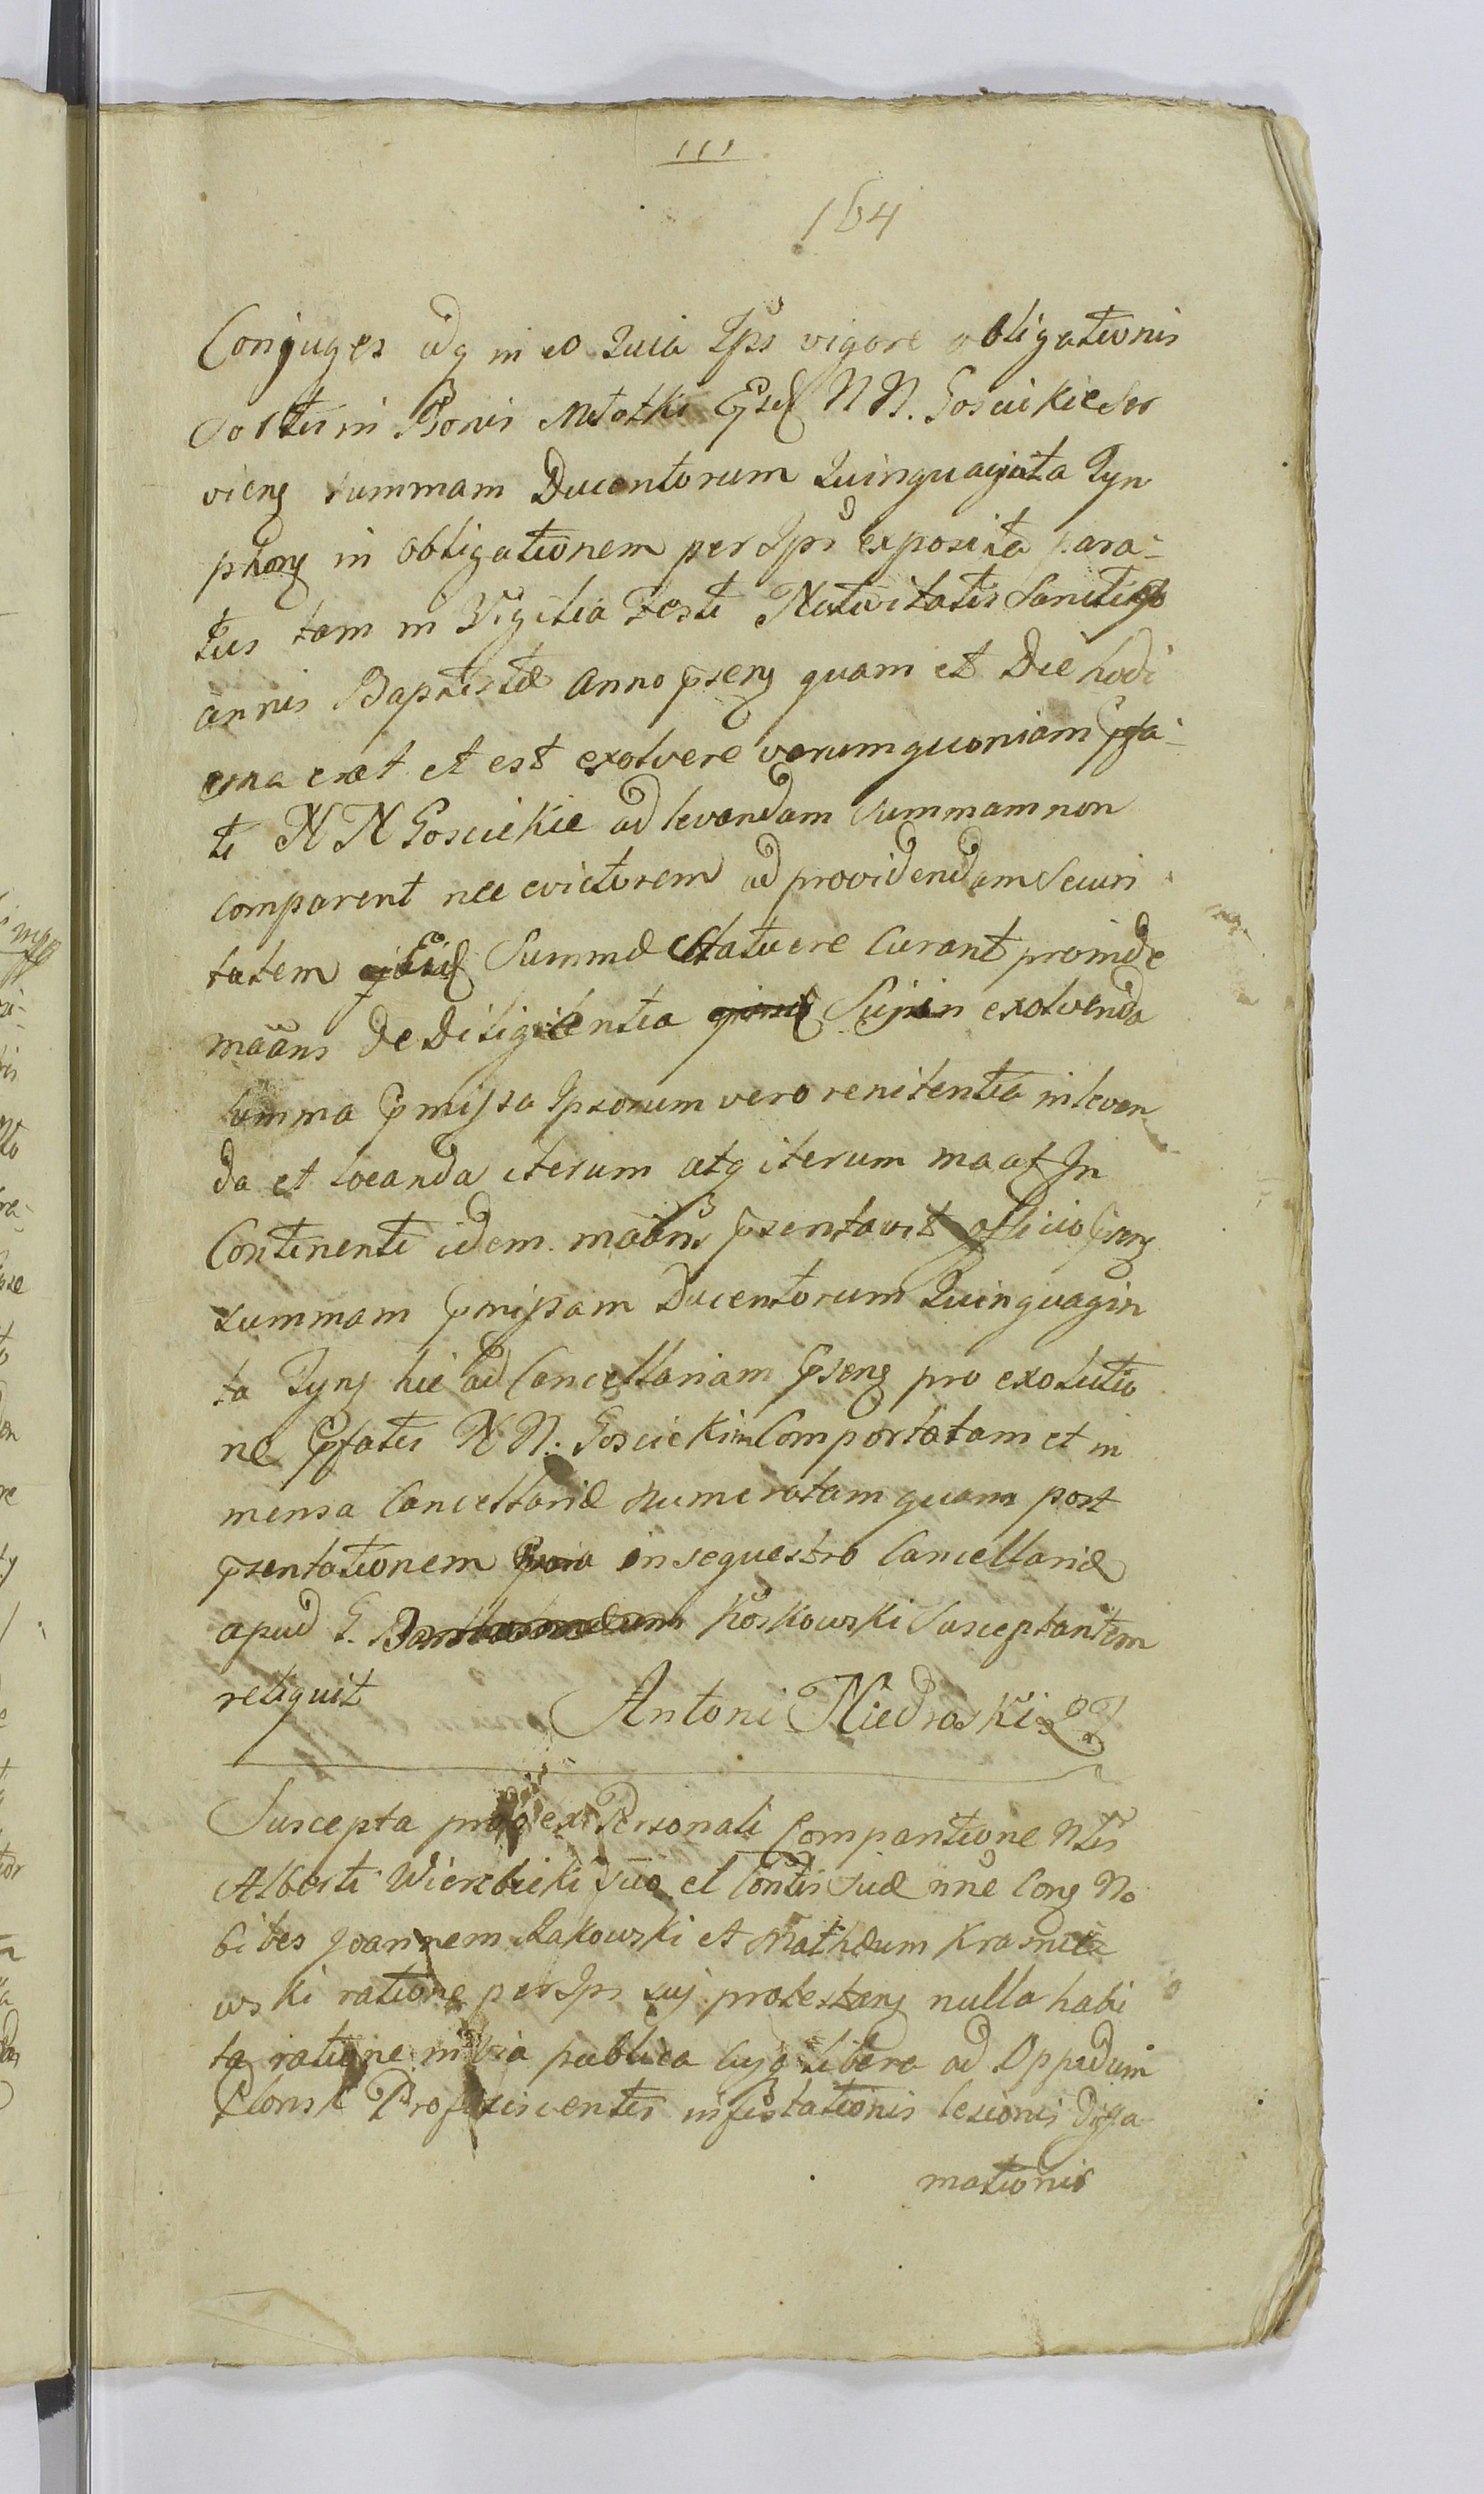 111
164
Conjuges idq in eo Quia Ips vigore obligationis
Sortis in Bonis Młotki Ejsd N N. Gosciekie Ser
vieng summam Ducentorum Quinquaginta Tyn
phong in obligationem per Ips exposita para-
tus tam in Vigilia Festi Nativitatis Sancti Jo
annis Baptistæ Anno pseng quam et Die hodi
erna erat et est exolvere verum quoniam pfa-
ti N N Gosciekie ad levandam summam non
comparent nec evictorem ad providendam Securi
tatem Eisd Summæ Statuere Curant proinde
mãans de Diligentia Sui in exolvenda
summa pmissa Ipsorum vero renitentia in levan
da et locanda iterum atq iterum maat In
Continenti idem mãans psentavit officio pseng
summam pmissam Ducentorum Quinquagin
ta Tyng hic ad Cancellariam pseng pro exolutio
ne pfatis N N. Gosciekim Comportatam et in
mensa Cancellariæ numeratam quam post
psentationem in sequestro Cancellariæ
apud G. Koskowski Susceptantem
reliquit Antoni Niedroski
Suscepta ex Personali Comparitione Nlis
Alberti Wierzbicki suo et Contis suæ nne Cong No
biles Joannem Rakowski et Mathæum Krasnie
wski ratione per Ips suj protestang nulla habi
ta ratione in via publica cujq libera ad Oppidum
Płonsk Proficiscentis infestationis lesionis Diffa
mationis